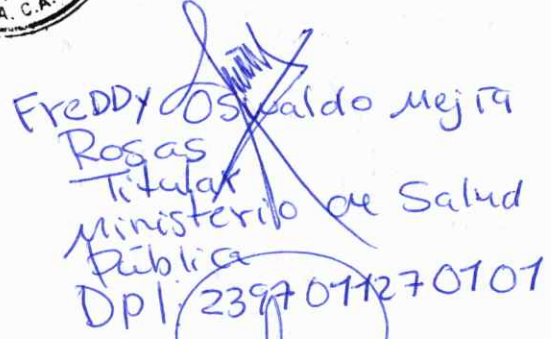 A. C.A.
FreDDy Oswaldo Mejía
Rosas
Titular
Ministerio de Salud
Pública
DPI: 2397 01127 0101